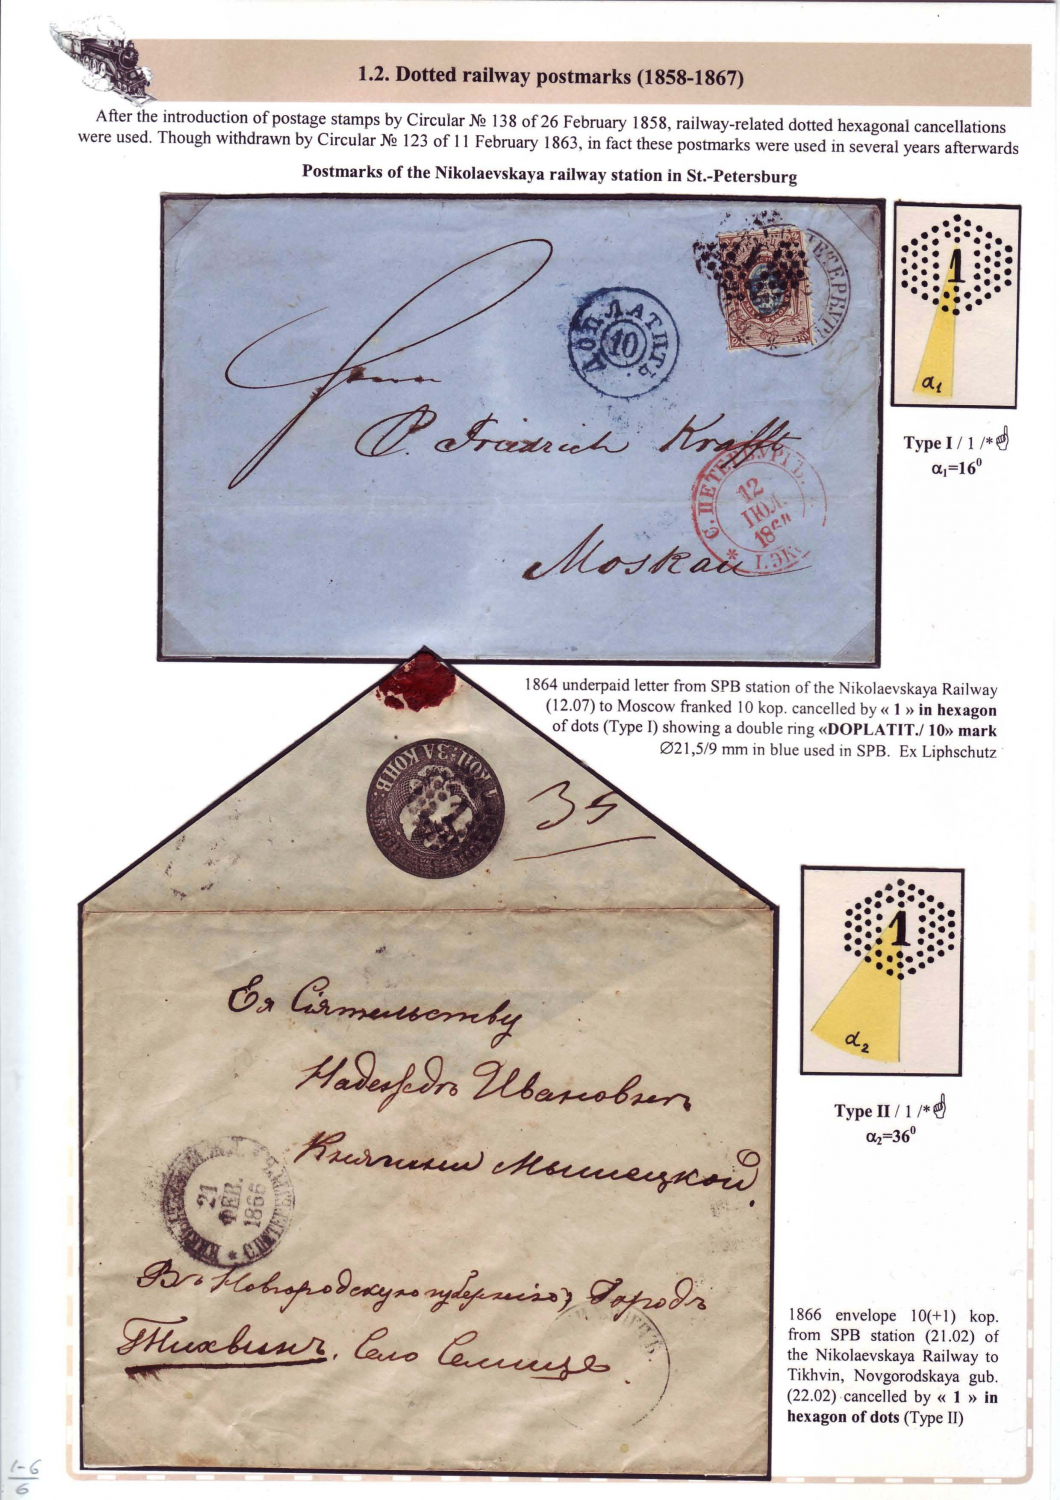 1.2. Dotted railway postmarks (1858-1867)
After the introduction of postage stamps by Circular № 138 of 26 February 1858, railway-related dotted hexagonal cancellations
were used. Though withdrawn by Circular № 123 of 11 February 1863, in fact these postmarks were used in several years afterwards
Postmarks of the Nikolaevskaya railway station in St.-Petersburg
ПЕТЕРБУРГ
ДОПЛАТИТЬ.
10
P. Friedrich Krafft
Moskau
С. ПЕТЕРБУРГЪ.
12
ІЮЛ.
1864
1
α1
Type I / 1 /*
α1=16⁰
1864 underpaid letter from SPB station of the Nikolaevskaya Railway
(12.07) to Moscow franked 10 kop. cancelled by « 1 » in hexagon
of dots (Type I) showing a double ring «DOPLATIT./ 10» mark
Ø21,5/9 mm in blue used in SPB. Ex Liphschutz
КОП. ЗА КОНВ.
35
Ея Сіятельству
Надеждѣ Ивановнѣ
Княгини Мышецкой
21
ФЕВ.
1866
С.ПЕТЕР
Въ Новгородскую губернію, Городъ
Тихвинъ. Село Семище
1
α2
Type II / 1 /*
α2=36⁰
1866 envelope 10(+1) kop.
from SPB station (21.02) of
the Nikolaevskaya Railway to
Tikhvin, Novgorodskaya gub.
(22.02) cancelled by « 1 » in
hexagon of dots (Type II)
1-6
6